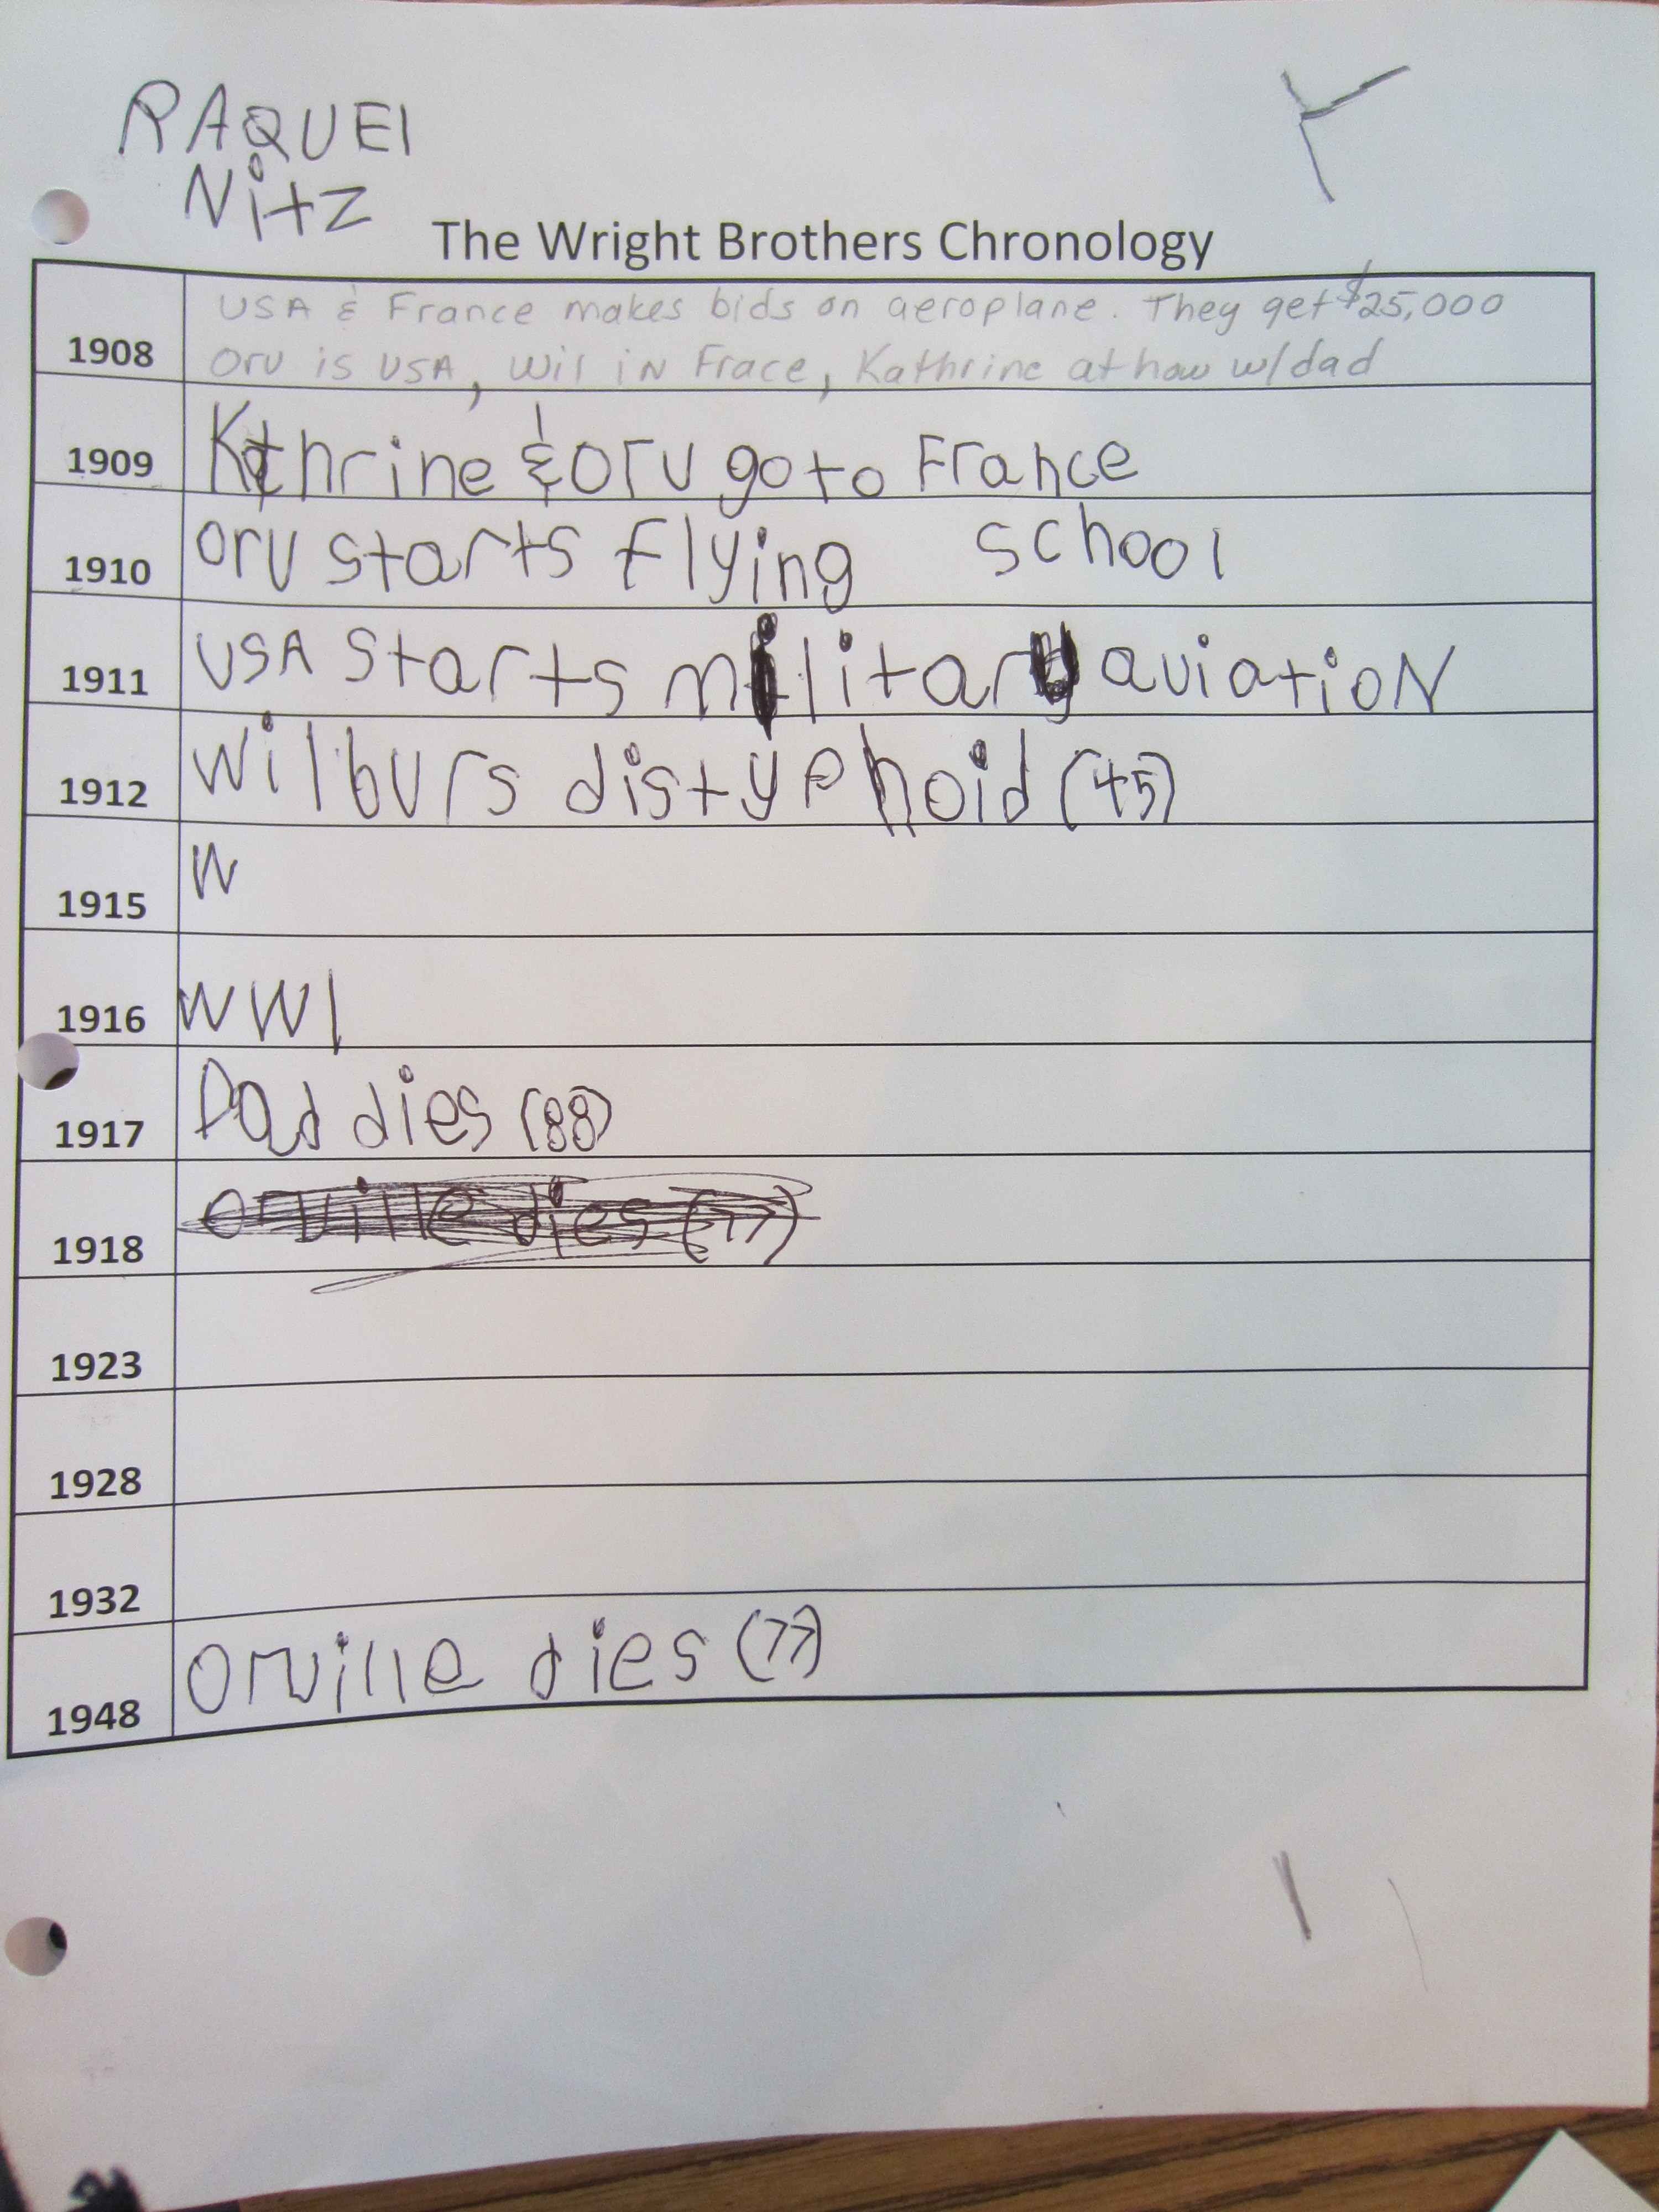 RAQUEl
Nitz
The Wright Brothers Chronology
1908 USA & France makes bids on aeroplane. They get $25,000
Orv is USA, Wil iN Frace, Kathrine at how w/dad
1909 Kathrine & orv go to France
1910 orv starts flying school
1911 USA starts military aviatioN
1912 Wilburs dis typhoid (45)
1915 W
1916 WW1
1917 Dad dies (88)
1918 orville dies (77)
1923
1928
1932
1948 Orville dies (77)